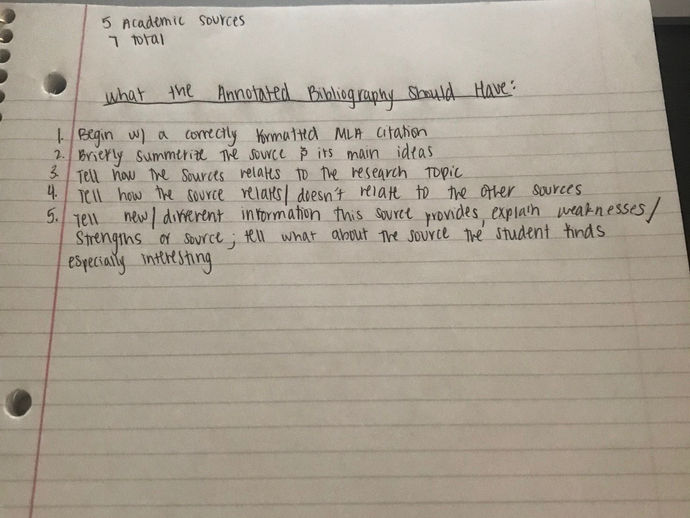 5 Academic sources
7 total
What the Annotated Bibliography Should Have:
1. Begin w/ a correctly formatted MLA citation
2. Briefly summerize the source & its main ideas
3. Tell how the sources relates to the research topic
4. Tell how the source relates/doesn't relate to the other sources
5. Tell new/different information this source provides, explain weaknesses/
strengths of source; tell what about the source the student finds
especially interesting